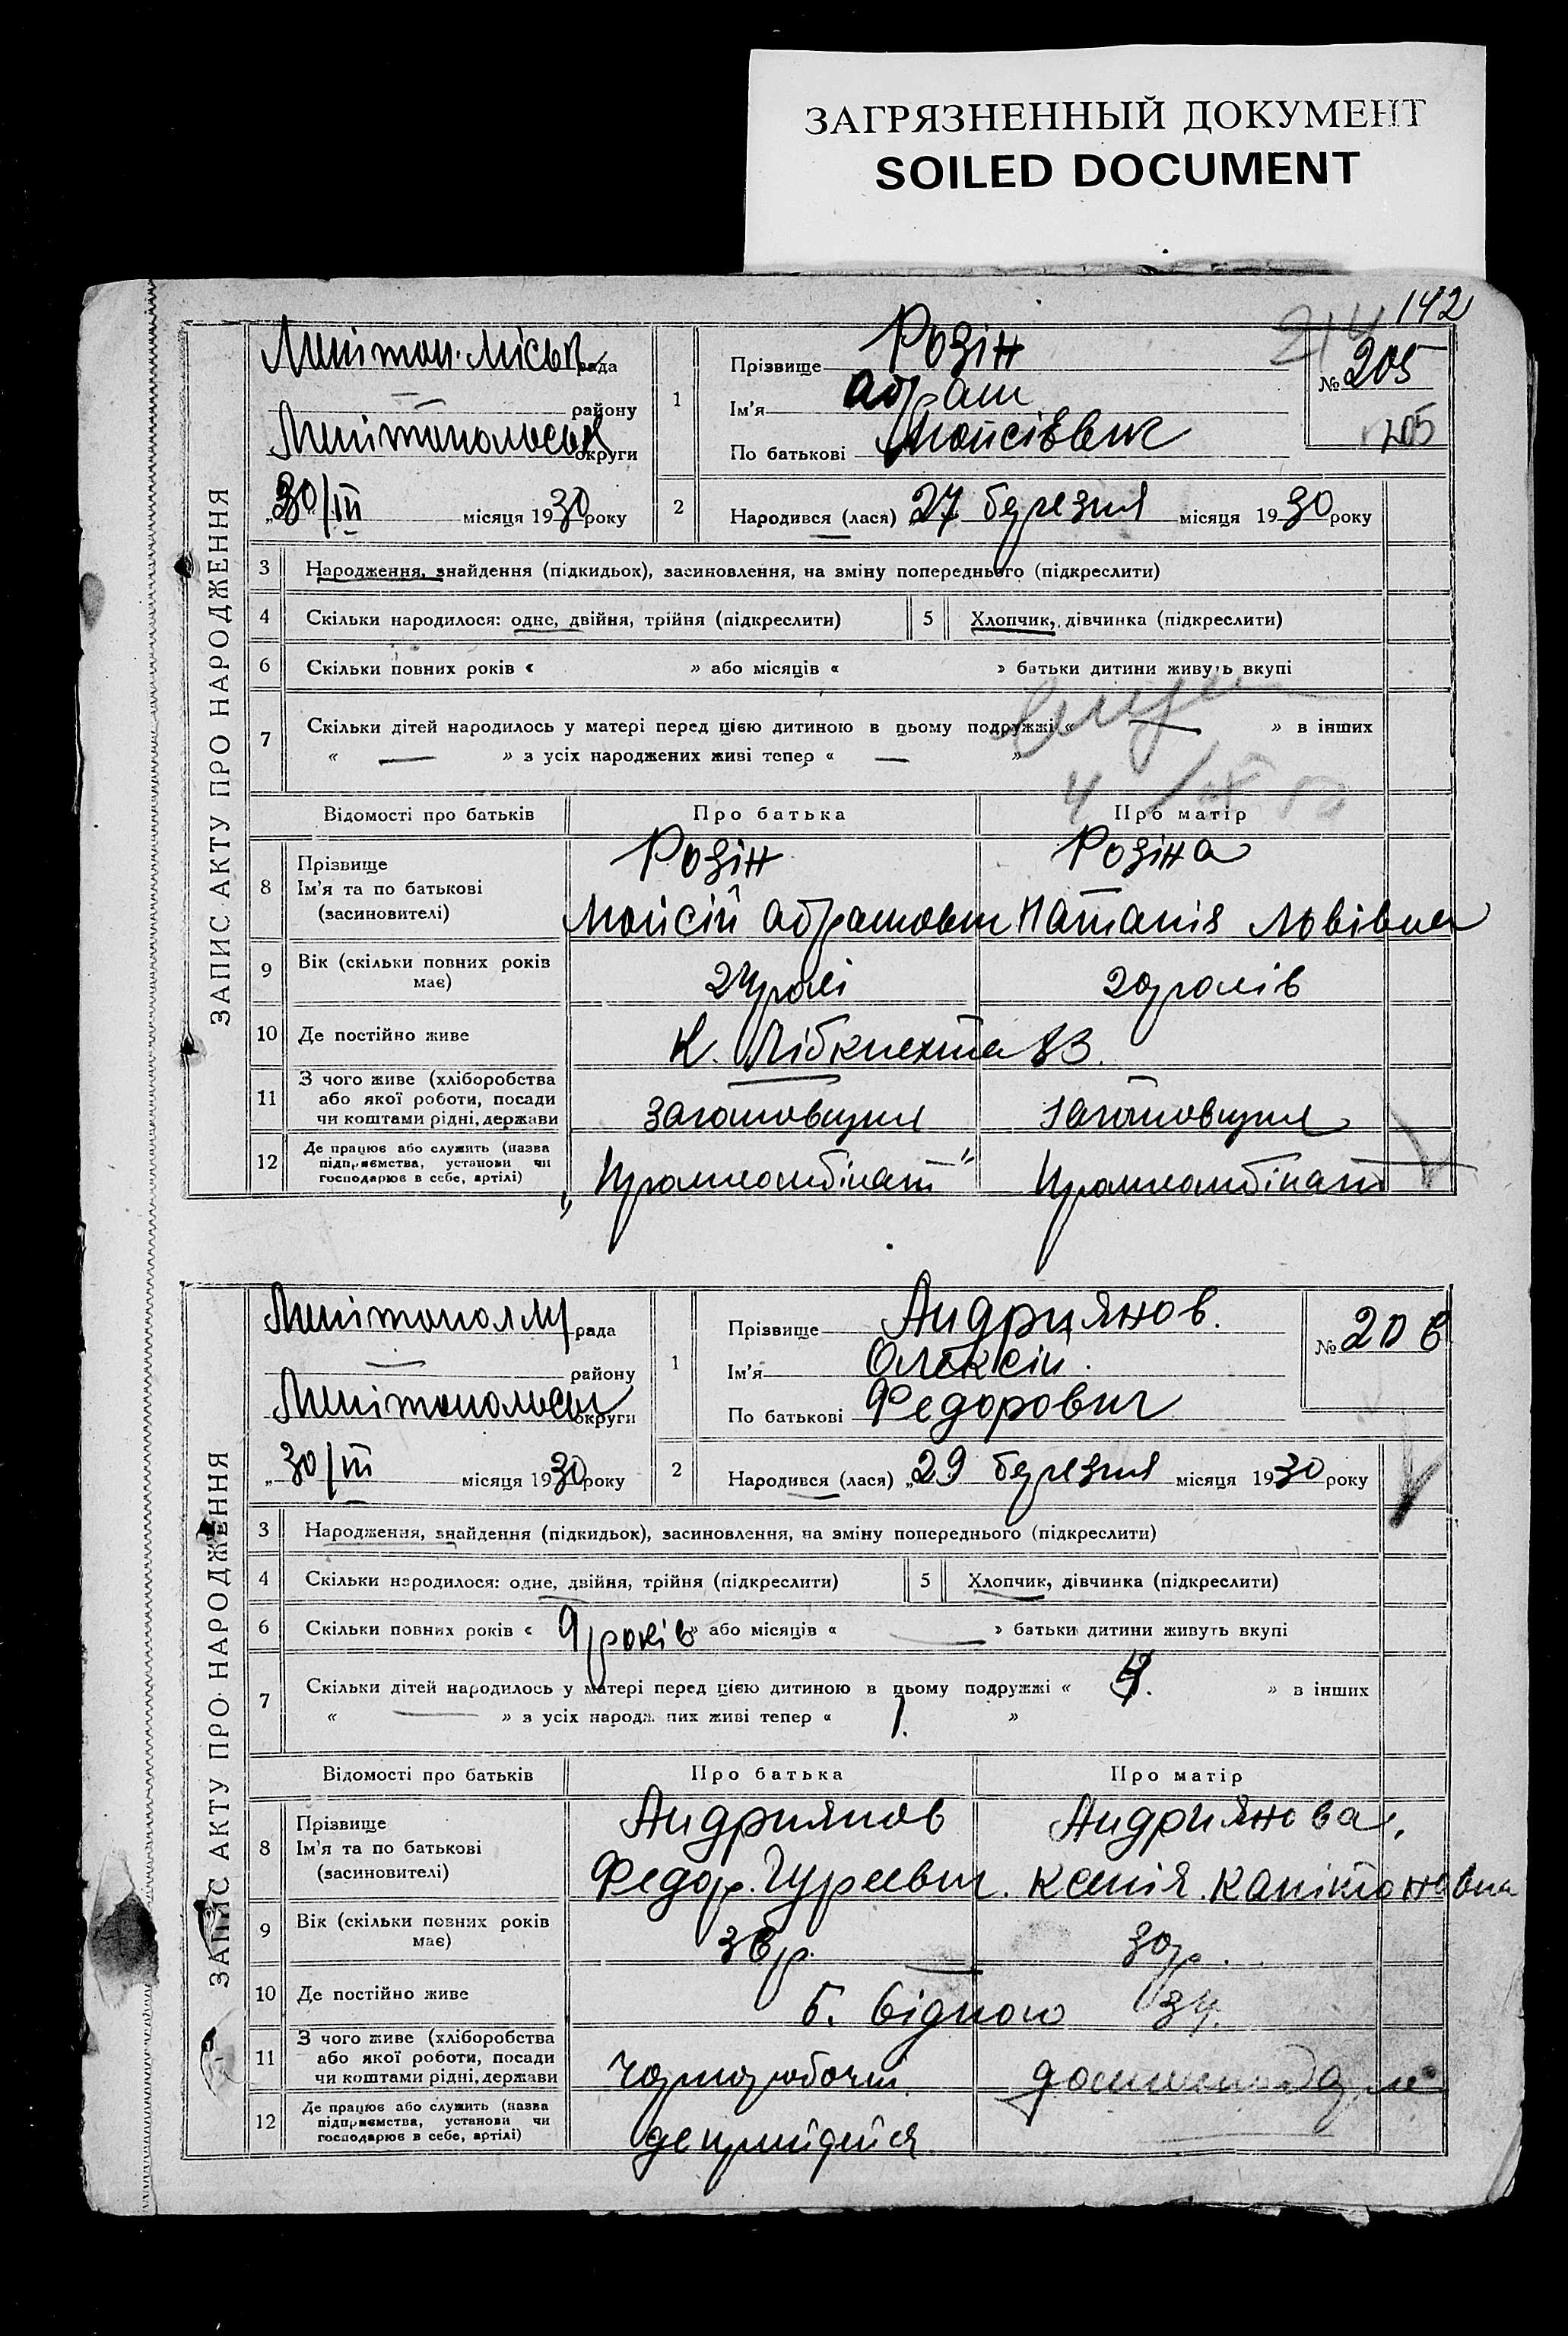 ЗАГРЯЗНЕННЫЙ ДОКУМЕНТ
SOILED DOCUMENT
142
214
ЗАПИС АКТУ ПРО НАРОДЖЕННЯ
Мелітоп. міськ рада
— району
Мелітопольської округи
„30/III місяця 1930 року
1
Прізвище Розін
Ім'я Абрам
По батькові Мойсієвич
№ 205
205
2
Народився (лася) 27 березня місяця 1930 року
3 Народження, знайдення (підкидьок), засиновлення, на зміну попереднього (підкреслити)
4 Скільки народилося: одне, двійня, трійня (підкреслити) 5 Хлопчик, дівчинка (підкреслити)
6 Скільки повних років « » або місяців « » батьки дитини живуть вкупі
7 Скільки дітей народилось у матері перед цією дитиною в цьому подружжі « — » в інших
« — » з усіх народжених живі тепер « — »
Відомості про батьків Про батька Про матір
8 Прізвище Розін Розіна
Ім'я та по батькові
(засиновителі) Мойсій Абрамович Наталія Львівна
9 Вік (скільки повних років має) 24 роки 20 років
10 Де постійно живе К. Лібкнехта 83.
11 З чого живе (хліборобства
або якої роботи, посади
чи коштами рідні, держави заготовщик заготовщик
12 Де працює або служить (назва
підприємства, установи чи
господарює в себе, артілі) „Промкомбінат" Промкомбінат
ЗАПИС АКТУ ПРО НАРОДЖЕННЯ
Мелітопол м/ рада
— району
Мелітопольськ округи
„30/III місяця 1930 року
1
Прізвище Андриянов.
Ім'я Олексій.
По батькові Федорович
№ 206
2
Народився (лася) „29 березня місяця 1930 року
3 Народження, знайдення (підкидьок), засиновлення, на зміну попереднього (підкреслити)
4 Скільки народилося: одне, двійня, трійня (підкреслити) 5 Хлопчик, дівчинка (підкреслити)
6 Скільки повних років « 9 років » або місяців « — » батьки дитини живуть вкупі
7 Скільки дітей народилось у матері перед цією дитиною в цьому подружжі « » в інших
« — » з усіх народжених живі тепер « 1. »
Відомості про батьків Про батька Про матір
8 Прізвище Андриянов Андриянова.
Ім'я та по батькові
(засиновителі) Федор. Гуреевич. Ксенія. Капітоновна
9 Вік (скільки повних років має) 36 р. 30 р.
10 Де постійно живе Б. Бідного 34.
11 З чого живе (хліборобства
або якої роботи, посади
чи коштами рідні, держави чорноробочий
12 Де працює або служить (назва
підприємства, установи чи
господарює в себе, артілі) де прийдеться